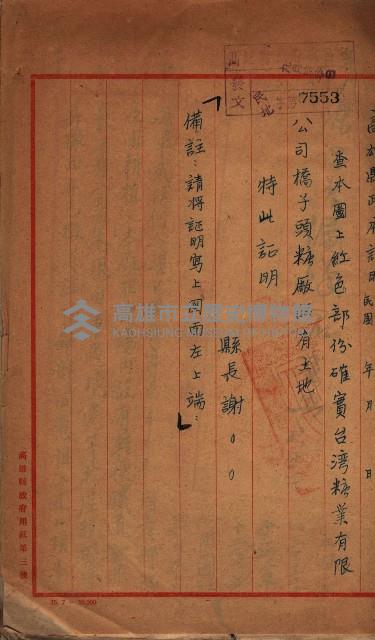 高雄縣政府証明 民國 年 月 日
查本圖上紅色部份確實台湾糖業有限
公司橋子頭糖廠所有土地
特此証明
縣長謝○○
備註：請將証明寫上圖面左上端：
發文
7553
高雄市立歷史博物館
KAOHSIUNG MUSEUM OF HISTORY
高雄縣政府用紙第三號